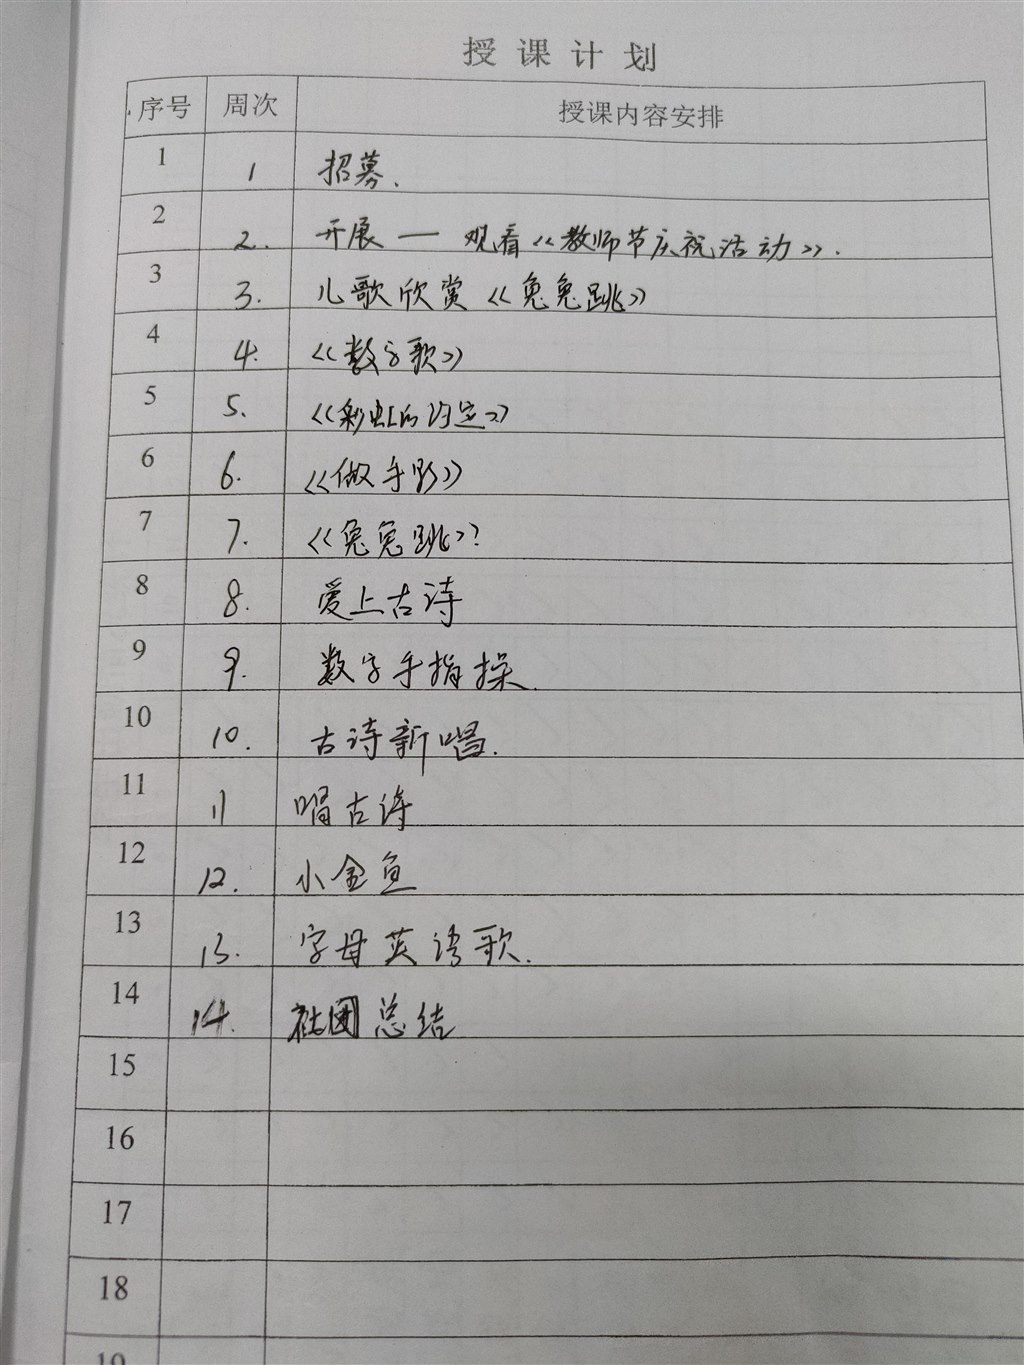 授课计划
序号 周次 授课内容安排
1 1 招募.
2 2. 开展 — 观看《教师节庆祝活动》.
3 3. 儿歌欣赏《兔兔跳》
4 4. 《数字歌》
5 5. 《彩虹的约定》
6 6. 《做手影》
7 7. 《兔兔跳》
8 8. 爱上古诗
9 9. 数字手指操.
10 10. 古诗新唱.
11 11 唱古诗
12 12. 小金鱼
13 13. 字母英语歌.
14 14. 社团总结
15
16
17
18
19